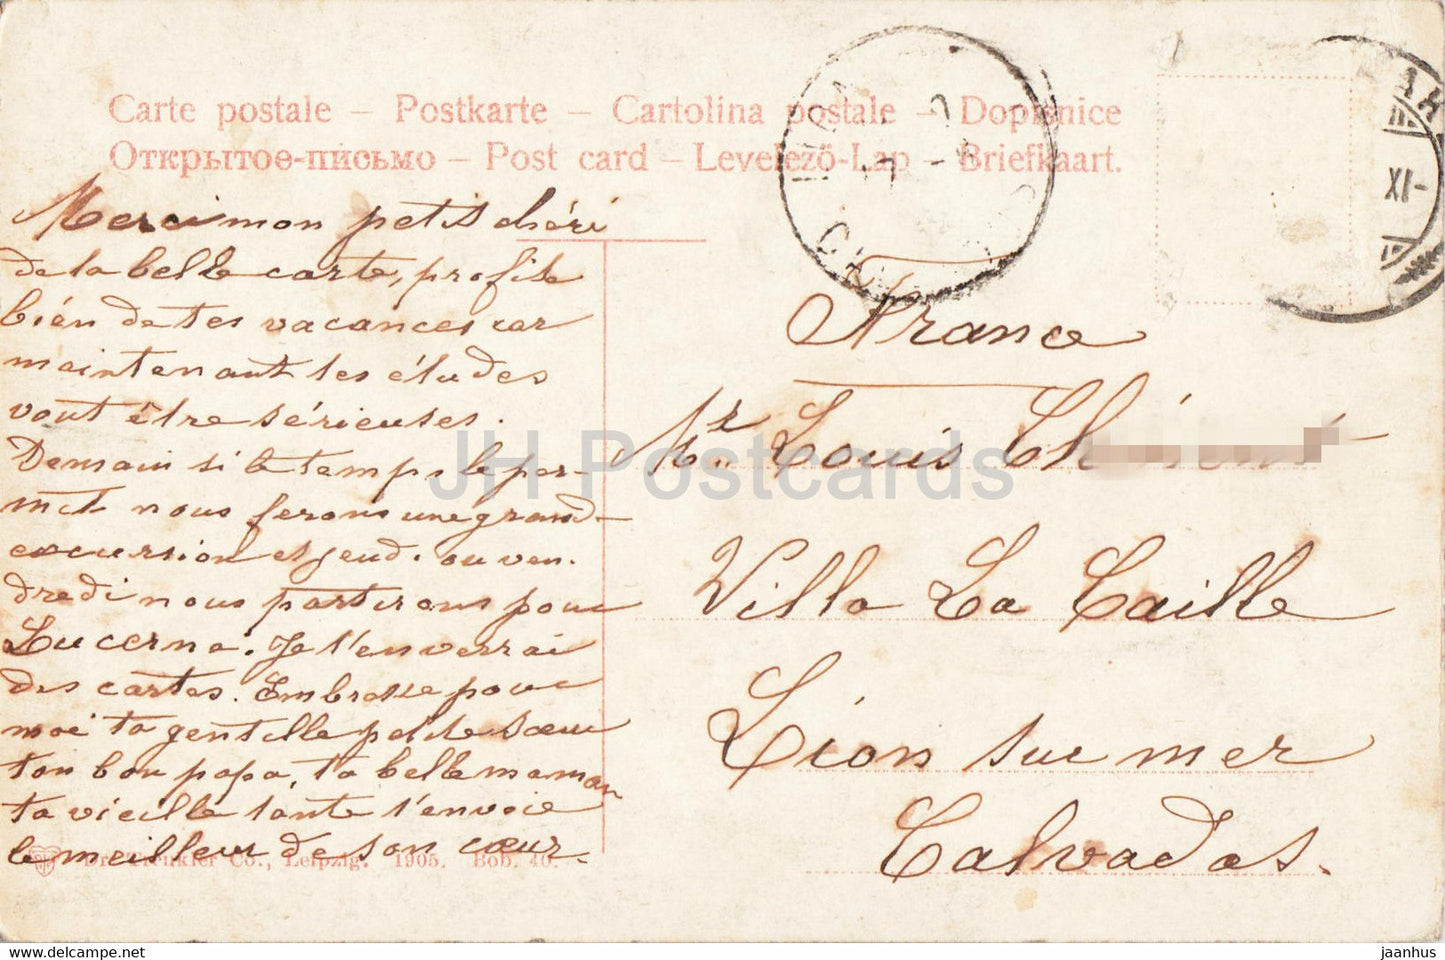 Carte postale – Postkarte – Cartolina postale – Dopisnice
Открытое-письмо – Post card – Levelező-Lap – Briefkaart.
Merci mon petit chéri
de la belle carte, profite
bién de tes vacances car
maintenant les études
vont être sérieuses.
Demain si le temps le per-
met nous ferons une grand-
excursion et jeud. ou ven.
dredi nous partirons pour
Lucerne. Je t'enverrai
des cartes. Embrasse pour
moi ta gentille petite sœur
ton bon papa, ta belle maman
ta vieille tante t'envoie
le meilleur de son cœur.
Dr. Trenkler Co., Leipzig. 1905. Bob. 40.
France
Mr. Louis
Villa La Caille
Lion sur mer
Calvados.
XI
JH Postcards
jaanhus